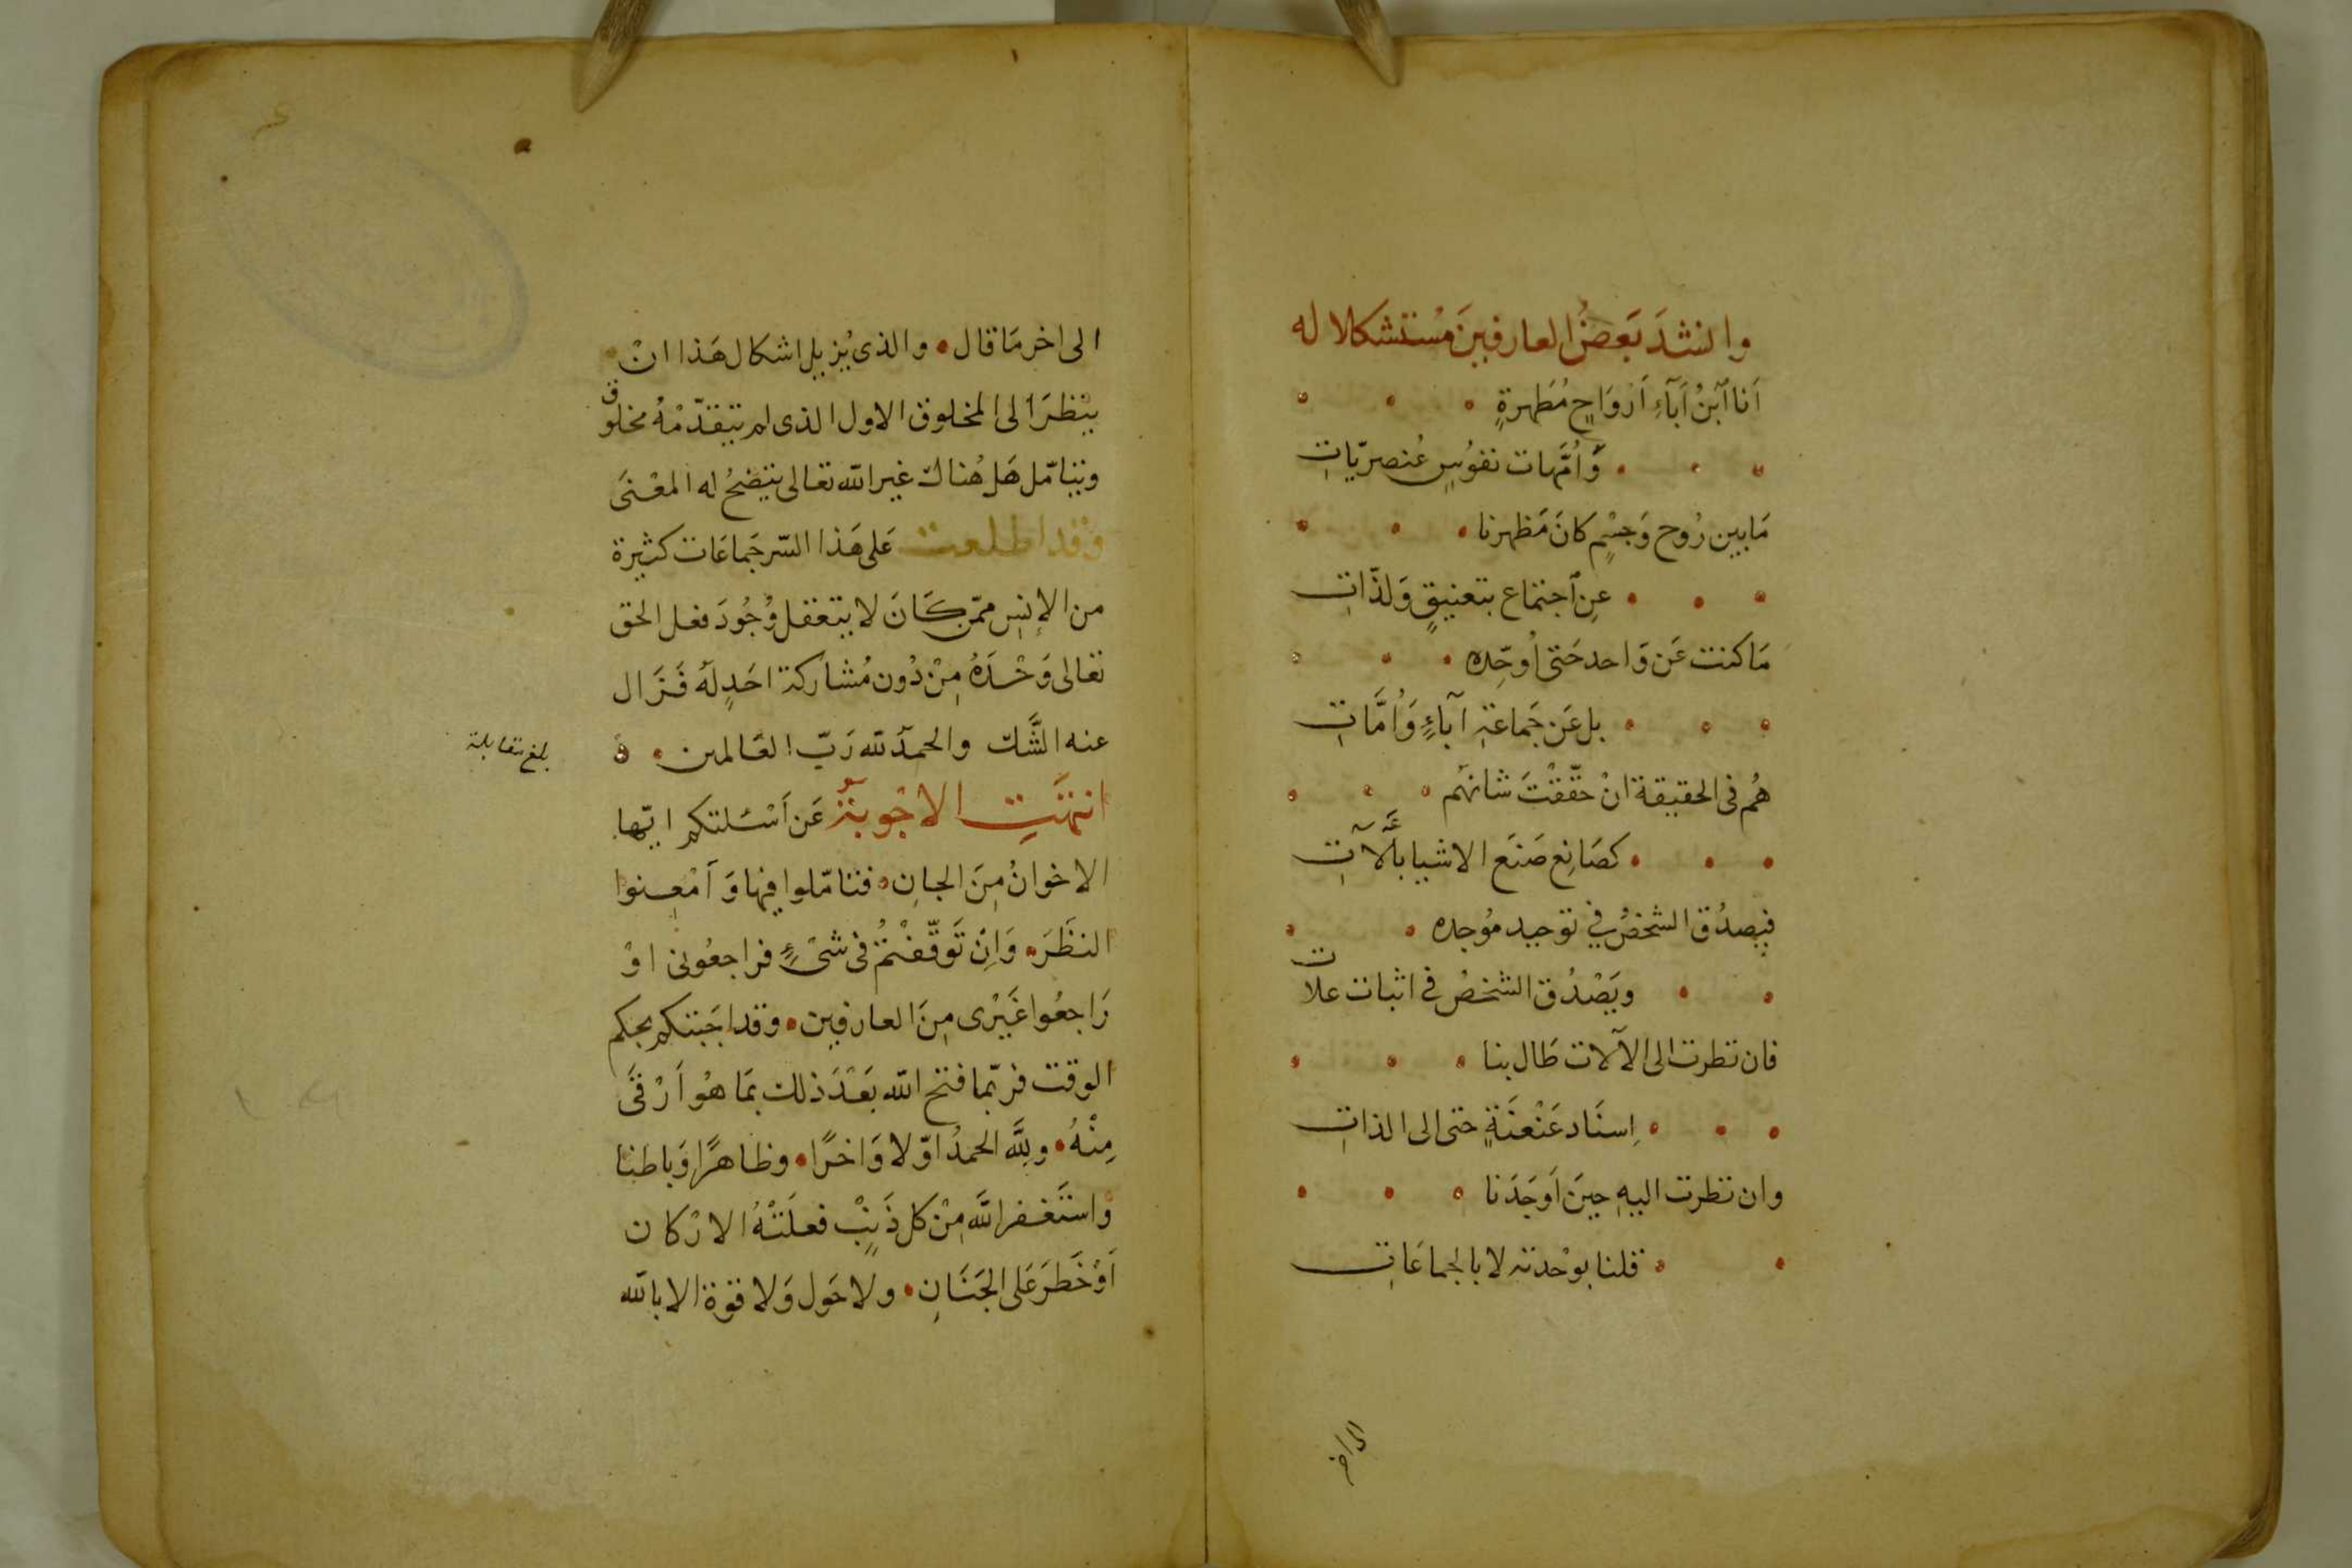 وانشدَ بَعضُ العارفينَ مُستشكلا له
اَنا اَبنُ اَبآءِ اَرْوَاحٍ مُطَهرةٍ
وَاُمَّهات نفوُسٍ عُنصريّاتِ
مَا بين رُوح وَجِسْمٍ كانَ مَظهرنا
عن اجتماع بتعنيقٍ وَلذّاتِ
مَا كنت عَن وَاحد حَتى اُوحّده
بل عَن جَماعة آباءٍ وَاُمَّاتِ
هُم فى الحقيقة انْ حقّقْتَ شانهُم
كصَانِع صَنَع الاشيا بآلاتِ
فيصدُق الشخصُ في توحيد مُوجده
ويَصْدُق الشخصُ في اثبات علات
فان نظرت الى الآلات طَال بنا
اِسنَاد عَنْعنَةٍ حتى الى الذاتِ
وان نظرت اليهِ حينَ اَوجَدَنا
قلنا بوَحْدته لا بالجماعَاتِ
الى اخر
الى اخر مَا قال والذى يُزيل اشكال هَذا انْ
ينْظرَ الى المخلوق الاول الذى لم يتقدّمْهُ مخلوق
ويتامّل هَل هُناك غير الله تعالى يتضحُ له المعْنَى
وَقد اطلعت عَلى هَذا السّر جَماعَات كثيرة
من الاِنسِ ممّن كَانَ لا يتعقل وُجُودَ فعل الحق
تعالى وَحْدَهُ مِنْ دُون مُشاركة احَدٍ لهُ فَزَال
عنه الشَّك والحمدُ لله رَبّ العَالمين ه
بلغ مقابلة
انتهَتِ الاجْوبةُ عَن اَسْئلتكم ايّها
الاخوانُ مِنَ الجانِ فتامّلوا فيها وَاَمْعِنوا
النظَرَ وَاِن تَوقّفْتُم فى شىْءٍ فراجعُونى اوْ
رَاجعُوا غَيْرى مِنَ العارفين وقد اجَبتكم بحكم
الوقت فربّما فتح الله بَعْدَ ذلك بمَا هُو اَرْقَى
مِنْهُ ولِلَّه الحمدُ اوّلا وَاخرًا وظاهرًا وَباطنا
وَاستَغفر اللَّه مِنْ كل ذَنْبٍ فعلَتْهُ الارْكان
اَوْ خَطَرَ عَلى الجَنَانِ ولا حَول وَلا قوة الا بالله